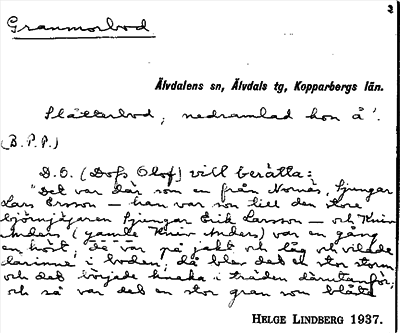 2
Granmorbod
Älvdalens sn, Älvdals tg, Kopparbergs län.
Slåtterbod, nedramlad hon å'.
(B.P.P.)
D.O. (Dofs Olof) vill berätta:
"Det var där som en från Nornäs, Sjungar
Lars Ersson — han var son till den store
björnjägaren Sjungar Erik Larsson — och Kniv
Anders (gamle Kniv Anders) var en gång
en höst, de var på jakt och låg och vilade
därinne i boden, då blev det en stor storm
och det började knaka i träden därutanför,
och så var det en stor gran som blåste
HELGE LINDBERG 1937.